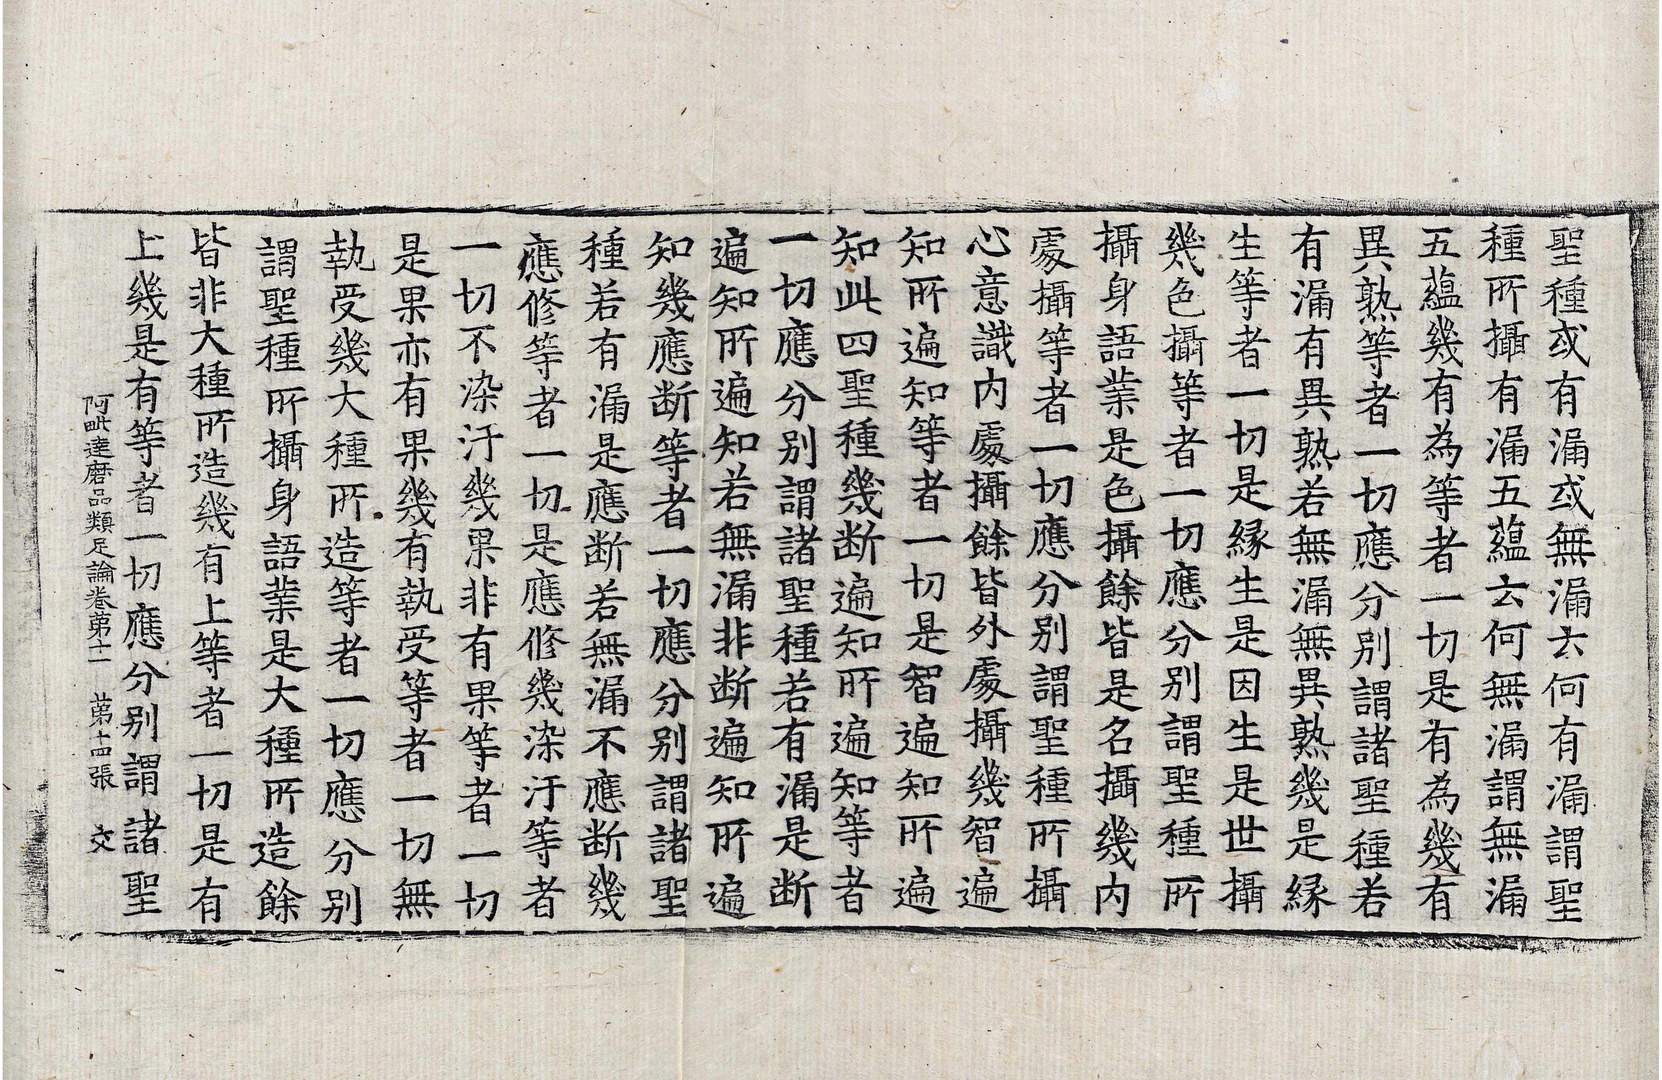 聖種或有漏或無漏云何有漏謂聖
種所攝有漏五蘊云何無漏謂無漏
五蘊幾有為等者一切是有為幾有
異熟等者一切應分別謂諸聖種若
有漏有異熟若無漏無異熟幾是緣
生等者一切是緣生是因生是世攝
幾色攝等者一切應分別謂聖種所
攝身語業是色攝餘皆是名攝幾內
處攝等者一切應分別謂聖種所攝
心意識內處攝餘皆外處攝幾智遍
知所遍知等者一切是智遍知所遍
知此四聖種幾斷遍知所遍知等者
一切應分別謂諸聖種若有漏是斷
遍知所遍知若無漏非斷遍知所遍
知幾應斷等者一切應分別謂諸聖
種若有漏是應斷若無漏不應斷幾
應修等者一切是應修幾染汙等者
一切不染汙幾果非有果等者一切
是果亦有果幾有執受等者一切無
執受幾大種所造等者一切應分別
謂聖種所攝身語業是大種所造餘
皆非大種所造幾有上等者一切是有
上幾是有等者一切應分別謂諸聖
阿毗達磨品類足論卷第十一 第十四張 交